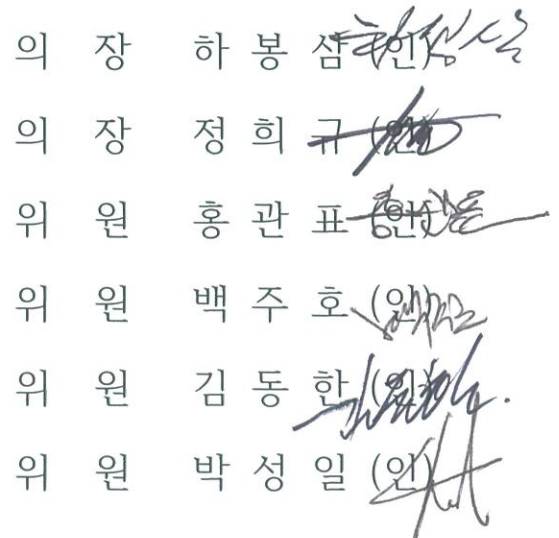 의 장 하 봉 삼 (인)
의 장 정 희 규 (인)
위 원 홍 관 표 (인)
위 원 백 주 호 (인)
위 원 김 동 한 (인)
위 원 박 성 일 (인)